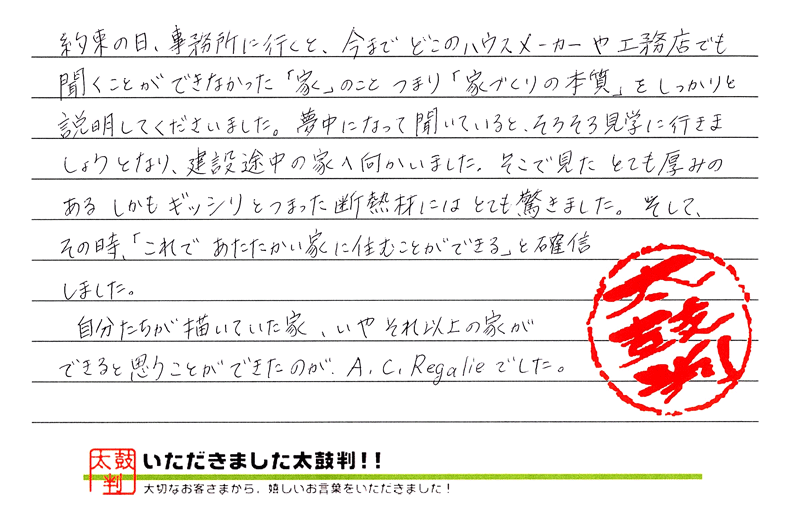 約束の日、事務所に行くと、今まで どこのハウスメーカーや工務店でも
聞くことができなかった「家」のこと つまり「家づくりの本質」をしっかりと
説明してくださいました。夢中になって聞いていると、そろそろ見学に行きま
しょうとなり、建設途中の家へ向かいました。そこで見た とても厚みの
ある しかもギッシリとつまった断熱材には とても驚きました。そして、
その時、「これで あたたかい家に住むことができる」と確信
しました。
自分たちが描いていた家、いや それ以上の家が
できると思うことができたのが、A.C.Regalieでした。
太鼓判
太鼓判
いただきました太鼓判!!
大切なお客さまから、嬉しいお言葉をいただきました!